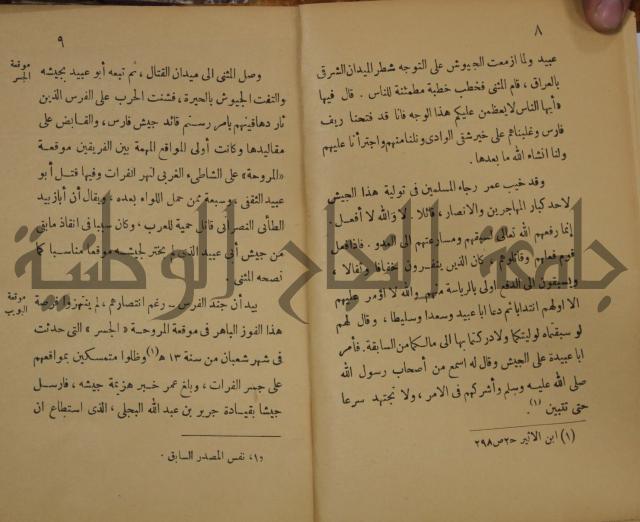 ٨
عبيد ولما ازمعت الجيوش على التوجه شطر الميدان الشرقى
بالعراق ، قام المثنى فخطب خطبة مطمئنة للناس . قال فيها
«أيها الناس لا يعظمن عليكم هذا الوجه فانا قد فتحنا ريف
فارس وغلبناهم على خير شقى الوادى ونلنا منهم واجترأنا عليهم
ولنا انشاء الله ما بعدها .
وقد خيب عمر رجاء المسلمين فى تولية هذا الجيش
لاحد كبار المهاجرين والانصار ، قائلا . لا والله لا أفعل .
إنما رفعهم الله تعالى بسبقهم ومسارعتهم الى العدو . فاذا فعل
قوم فعلهم وتثاقلوا ، كان الذين ينفرون خفافا وثقالا ،
ويسبقون الى الدفع أولى بالرياسة منهم والله لا أؤمر عليهم
الا اولهم انتدابا ثم دعا ابا عبيد وسعدا وسليطا ، وقال لهم
لو سبقتماه لوليتكما ولادركتما بها الى مالكما من السابقة . فأمر
ابا عبيدة على الجيش وقال له اسمع من أصحاب رسول الله
صلى الله عليه وسلم وأشركهم فى الامر ، ولا تجتهد سرعا
حتى تتبين (١) .
(١) ابن الاثير ح٢ص٢٩٨
٩
موقعة
الجسر
وصل المثنى الى ميدان القتال ، ثم تبعه أبو عبيد بجيشه
والتفت الجيوش بالحيرة ، فشنت الحرب على الفرس الذين
ثار دهاقينهم بامر رستم قائد جيش فارس ، والقابض على
مقاليدها وكانت أولى المواقع المهمة بين الفريقين موقعة
«المروحة» على الشاطىء الغربى لنهر الفرات وفيها قتل أبو
عبيد الثقفى ، وسبعة ممن حمل اللواء بعده ، ويقال أن أبازبيد
الطائى النصرانى قاتل حمية للعرب ، وكان سببا فى انقاذ مابقى
من جيش أبى عبيد الذى لم يختر لجيشه موقعا مناسبا كما
نصحه المثنى .
موقعة
البويب
بيد أن جند الفرس ـ رغم انتصارهم ، لم ينتهزوا فرصة
هذا الفوز الباهر فى موقعة المروحة « الجسر » التى حدثت
فى شهر شعبان من سنة ١٣ هـ(١) وظلوا متمسكين بمواقعهم
على جسر الفرات ، وبلغ عمر خبر هزيمة جيشه ، فارسل
جيشا بقيادة جرير بن عبد الله البجلى ، الذى استطاع ان
«١» نفس المصدر السابق .
جامعة النجاح الوطنية